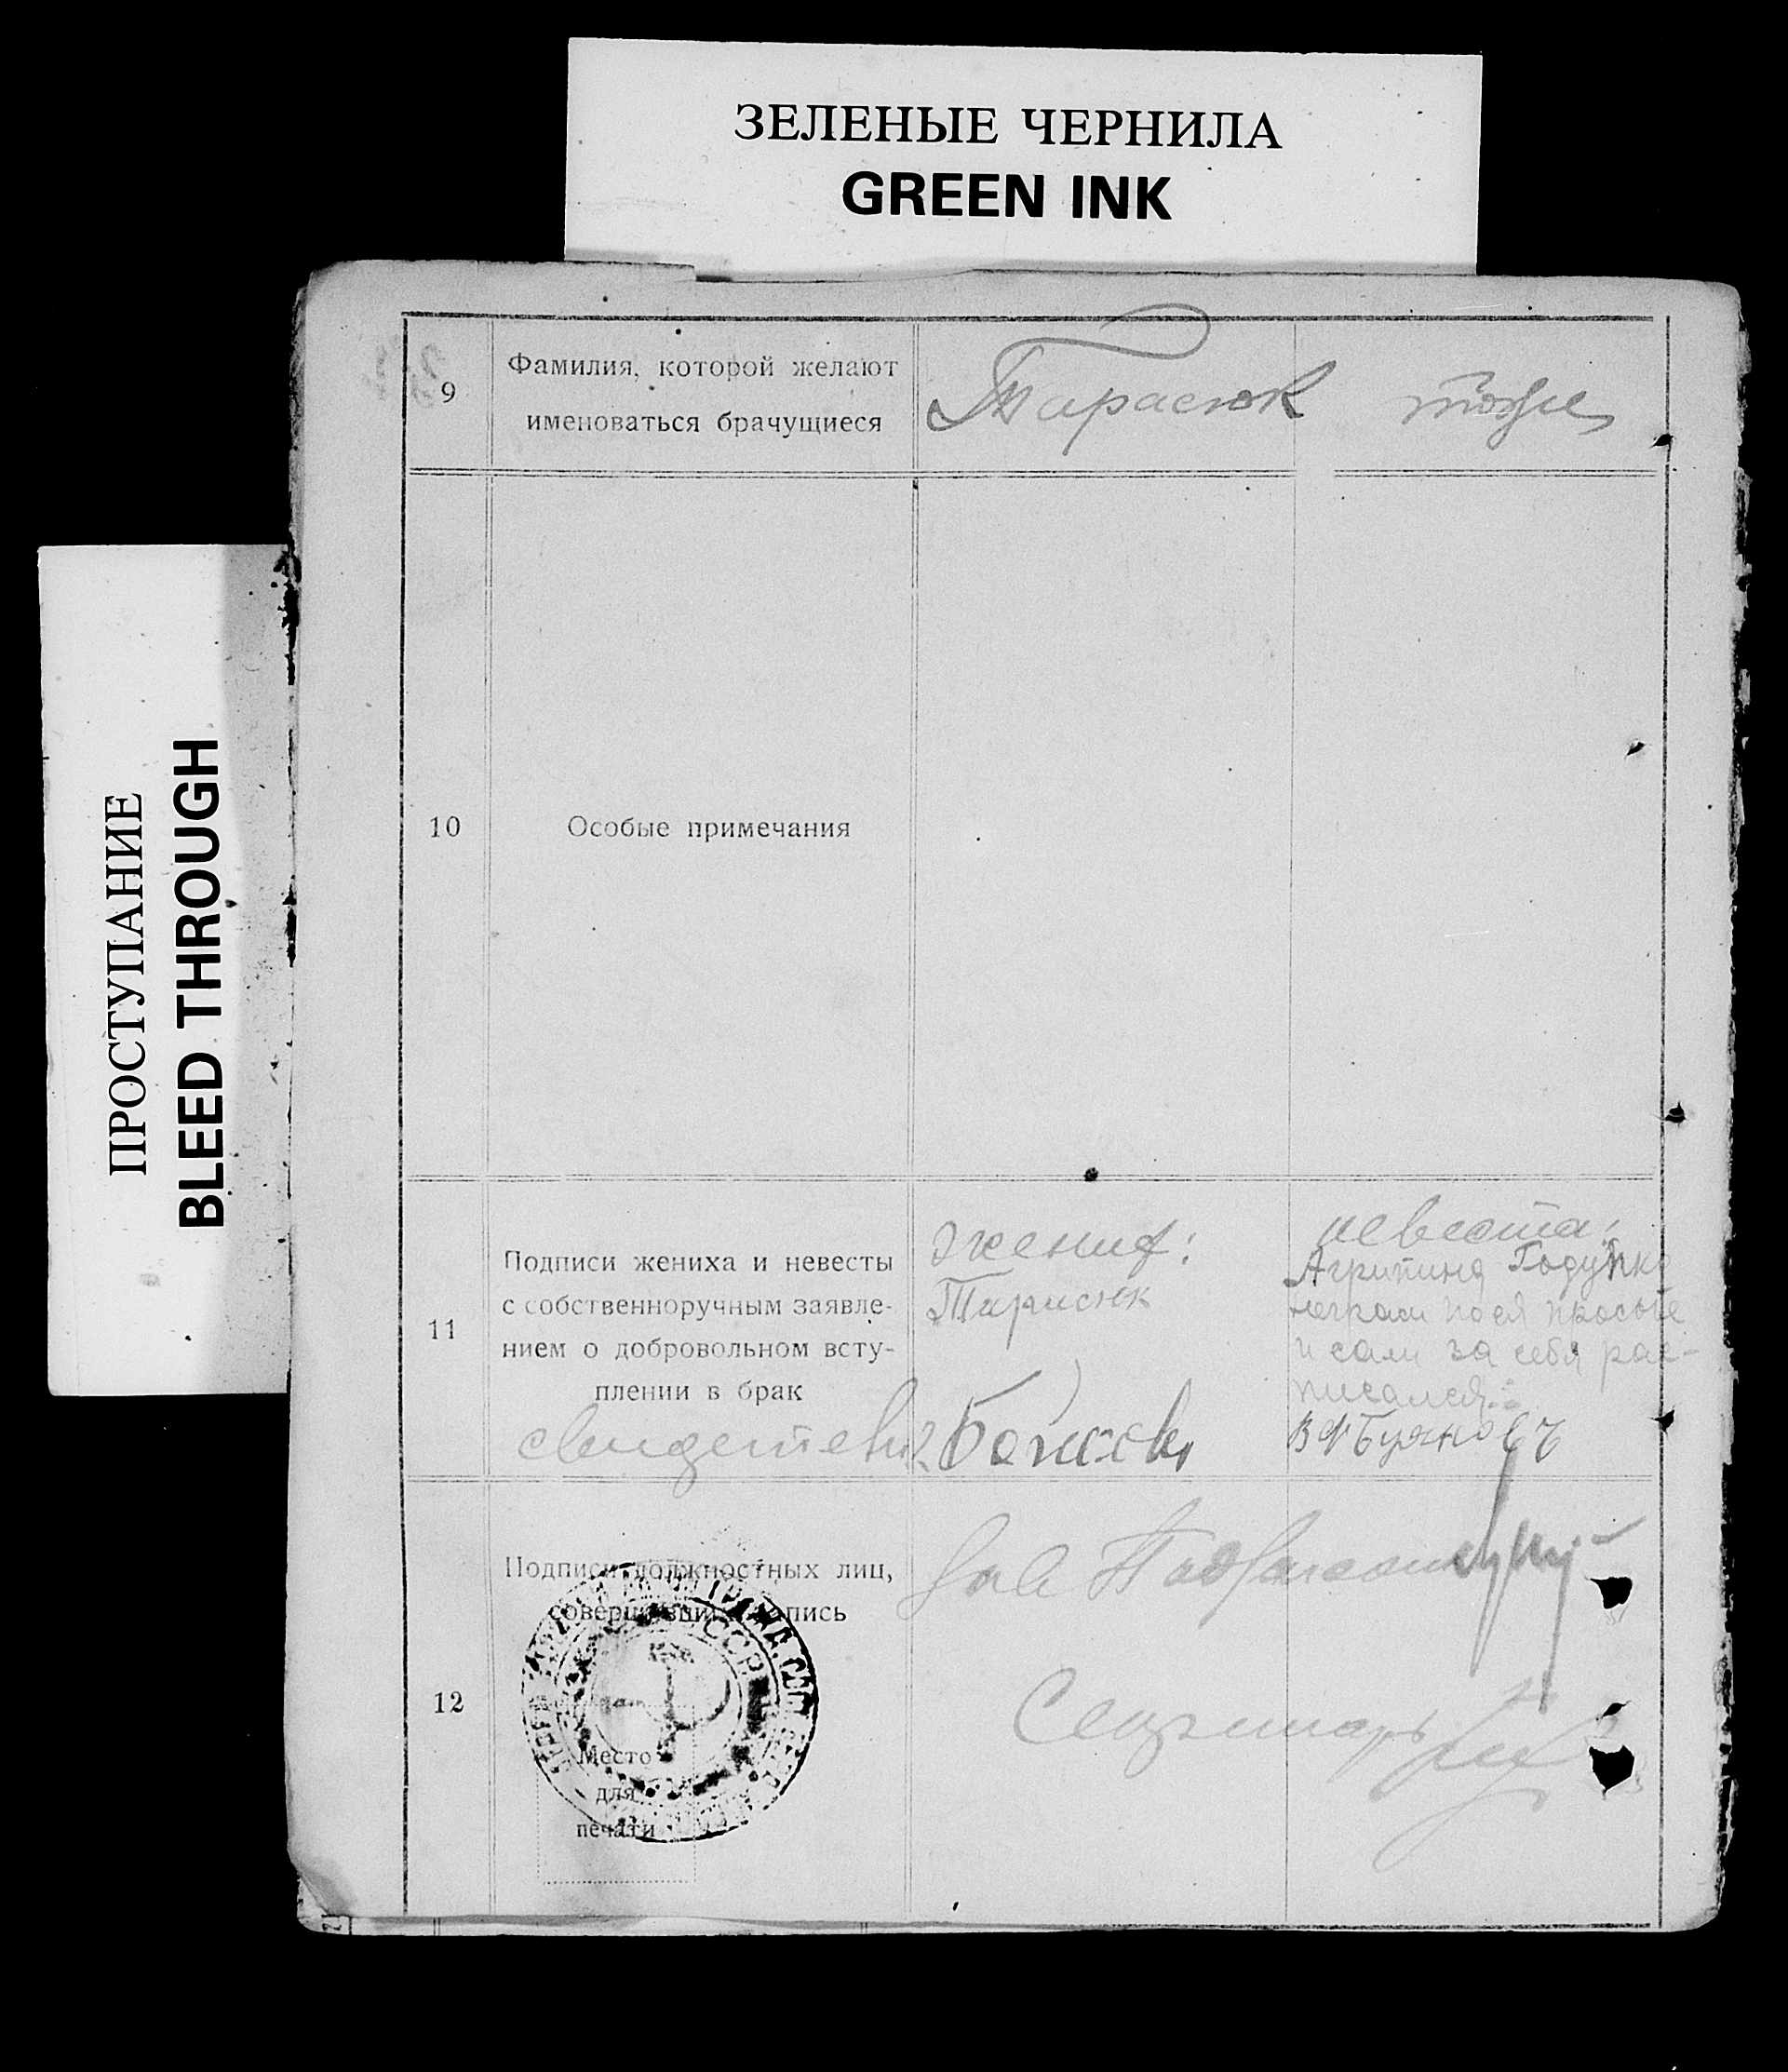 ЗЕЛЕНЫЕ ЧЕРНИЛА
GREEN INK
ПРОСТУПАНИЕ
BLEED THROUGH
9
Фамилия, которой желают
именоваться брачущиеся
Тарасюк
тоже
10
Особые примечания
11
Подписи жениха и невесты
с собственноручным заявле-
нием о добровольном всту-
плении в брак
жених:
Тарасюк
невеста:
Агрипина
просьбе
за себя рас-
писался
свидетели
12
Подписи должностных лиц,
совершивших запись
Зав
Секретарь
СССР
Место
для
печати